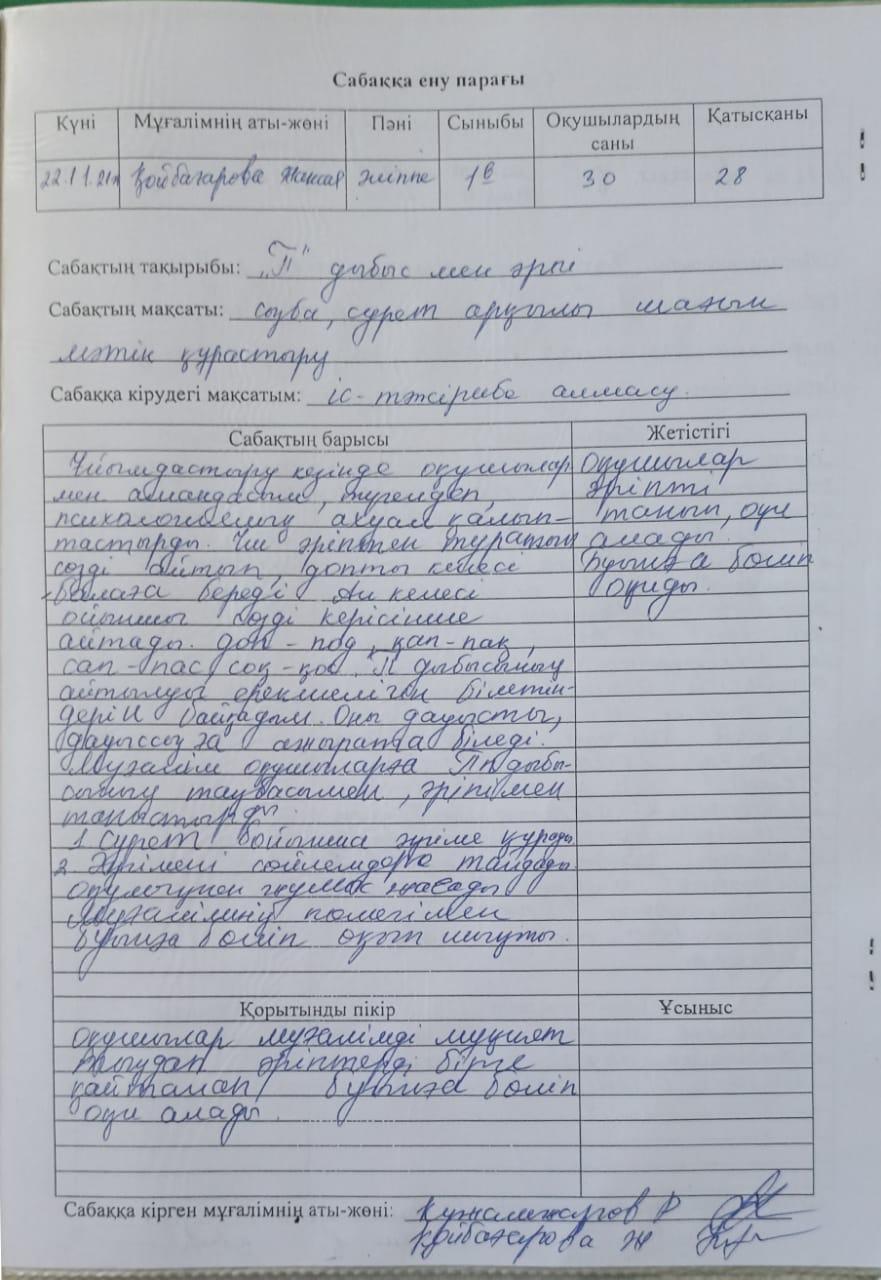 Сабаққа ену парағы
Күні Мұғалімнің аты-жөні Пәні Сыныбы Оқушылардың саны Қатысқаны
22.11.21ж Қойбағарова әліппе 1в 30 28
Сабақтың тақырыбы: „П" дыбыс мен әрпі
Сабақтың мақсаты: сызба, сурет арқылы шағын
мәтін құрастыру
Сабаққа кірудегі мақсатым: іс-тәжірибе алмасу.
Сабақтың барысы Жетістігі
Ұйымдастыру кезінде оқушылар
мен амандасып, түгендеп,
психологиялық ахуал қалып-
тастырды. Үш әріптен тұратын
сөзді айтып, допты келесі
балаға береді. Ал келесі
ойыншы сөзді керісінше
айтады. доп - под, қап-пақ,
сап-пас, соқ-қос. П дыбысының
айтылуы ерекшелігін білетін-
дерін байқадым. Оны дауысты,
дауыссызға ажырата біледі.
Мұғалім оқушыларға П дыбы-
сының таңбасымен, әріпімен
таныстырды.
1. Сурет бойынша әңгіме құрады
2. Әңгімені сөйлемдерге талдады
оқулықпен жұмыс жасады
Мұғалімнің көмегімен
буынға бөліп оқып шықты.
Оқушылар
әріпті
танып, оқи
алады.
Буынға бөліп
оқиды.
Қорытынды пікір Ұсыныс
Оқушылар мұғалімді мұқият
тыңдап әріптерді бірге
қайталап, буынға бөліп
оқи алады.
Сабаққа кірген мұғалімнің аты-жөні: Р
Қойбағарова Ж